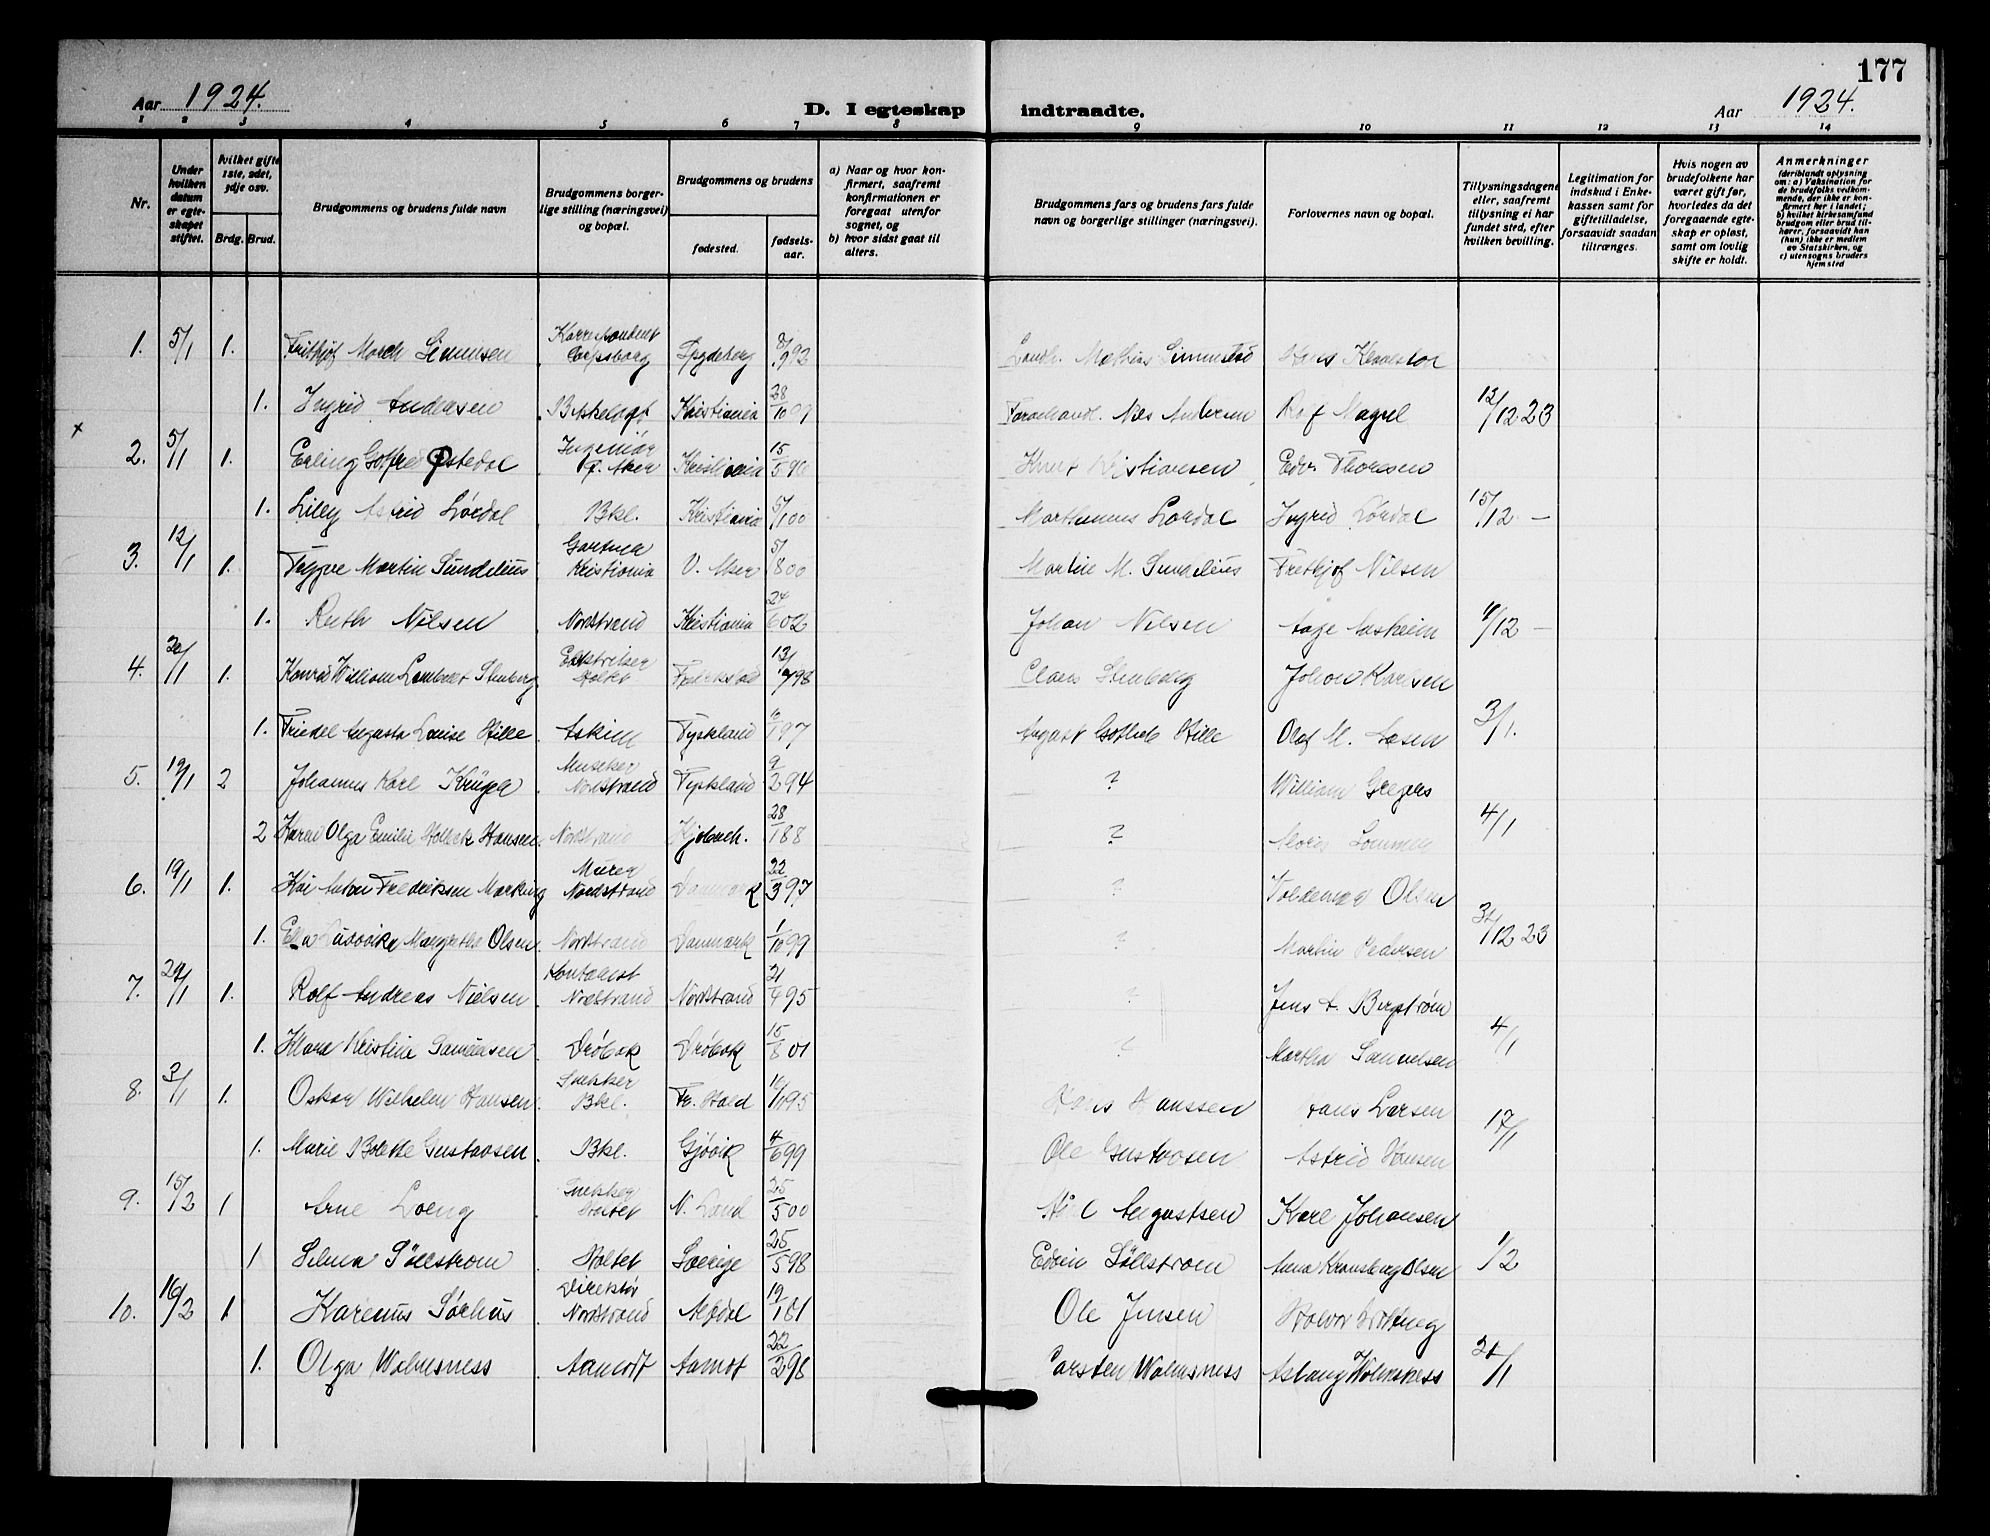 177
Aar 1924. D. I egteskap indtraadte. Aar 1924.
1 2 3 4 5 6 7 8 9 10 11 12 13 14
Nr.
Under hvilken datum er egteskapet stiftet.
hvilket gifte 1ste, 2det, 3dje osv.
Brdg. Brud.
Brudgommens og brudens fulde navn
Brudgommens borgerlige stilling (næringsvei) og bopæl.
Brudgommens og brudens
fødested. fødselsaar.
a) Naar og hvor konfirmert, saafremt konfirmationen er foregaat utenfor sognet, og
b) hvor sidst gaat til alters.
Brudgommens fars og brudens fars fulde navn og borgerlige stillinger (næringsvei).
Forlovernes navn og bopæl.
Tillysningsdagene eller, saafremt tillysning ei har fundet sted, efter hvilken bevilling.
Legitimation for indskud i Enkekassen samt for giftetilladelse, forsaavidt saadan tiltrænges.
Hvis nogen av brudefolkene har været gift før, hvorledes da det foregaaende egteskap er opløst, samt om lovlig skifte er holdt.
Anmerkninger (deriblandt oplysning om: a) Vaksination for de brudefolks vedkommende, der ikke er konfirmert her i landet; b) hvilket kirkesamfund brudgom eller brud tilhører, forsaavidt han (hun) ikke er medlem av Statskirken, og c) utensogns bruders hjemsted
1. 5/1 1. Fritjof Morch Simensen Korrespondent Sarpsborg Spydeberg 892 Landh. Mathias Hans
1. Ingrid Andersen Bekkelaget Kristiania 28/10 Nils Andersen Rolf 12/12 23
2. 5/1 1. Erling Østedal Ingeniør V. Aker Kristiania 15/5 90 Kristiansen Edv. Thoresen
1. Lilly Astrid Lördal Bkl. Kristiania 5/1 00 Marthinius Lördal Ingrid Lördal 15/12 -
3. 12/1 1. Trygve Martin Sundelius Gartner Kristiania V. Aker 5/8 00 Martin M. Sundelius Fritjof Nilsen
1. Ruth Nilsen Nordstrand Kristiania 24/6 02 Johan Nilsen Aage Aasheim 9/12 -
4. 20/1 1. Konrad William Stenberg Fredrikstad 98 Claes Stenberg Johan Karlsen
1. Friedel Augusta Louise Hille Askim Tyskland 97 August Gottlieb Hille Olaf M. Aasen 3/1.
5. 19/1 2 Johannes Karl Krüger Musiker Nordstrand Tyskland 9/2 94 ? William Gregers
2 Karen Olga Emilie Holbek Hansen Nordstrand Kjøbenh. 28/1 88 ? 4/1
6. 19/1 1. Kai Anton Fredriksen Marking Murer Nordstrand Danmark 22/3 97 ? Valdemar Olsen
1. Ella Ludovika Margrethe Olsen Nordstrand Danmark 1/10 99 ? Martin Pedersen 31/12 23
7. 29/1 1. Rolf Andreas Nielsen Kontorist Nordstrand Nordstrand 21/4 95 ? Jens A. Bergström
1. Kristine Samuelsen Dröbak Dröbak 15/8 01 ? Martha Samuelsen 4/1
8. 3/1 1. Oskar Wilhelm Hansen Snekker Bkl. Fr. Hald 95 Hans Hanssen Hans Larsen
1. Marie Bolette Gustavsen Bkl. Gjövik 4/6 99 Ole Gustavsen Astrid Hansen 17/1
9. 15/2 1 Arne Loeng Snekker Holtet N. Land 25/5 00 Augustsen Kare Johansen
1 Selma Söllstrom Holtet Sverige 25/5 98 Edvin Söllstrom Anna Kransberg Olsen 1/2
10. 16/2 1 Karenus Sörhus Direktör Nordstrand 19/1 81 Ole Jensen Halvor
1. Olga Walmsness Aamodt Aamot 22/2 98 Carsten Walmsness Aslaug Walmsness 21/1